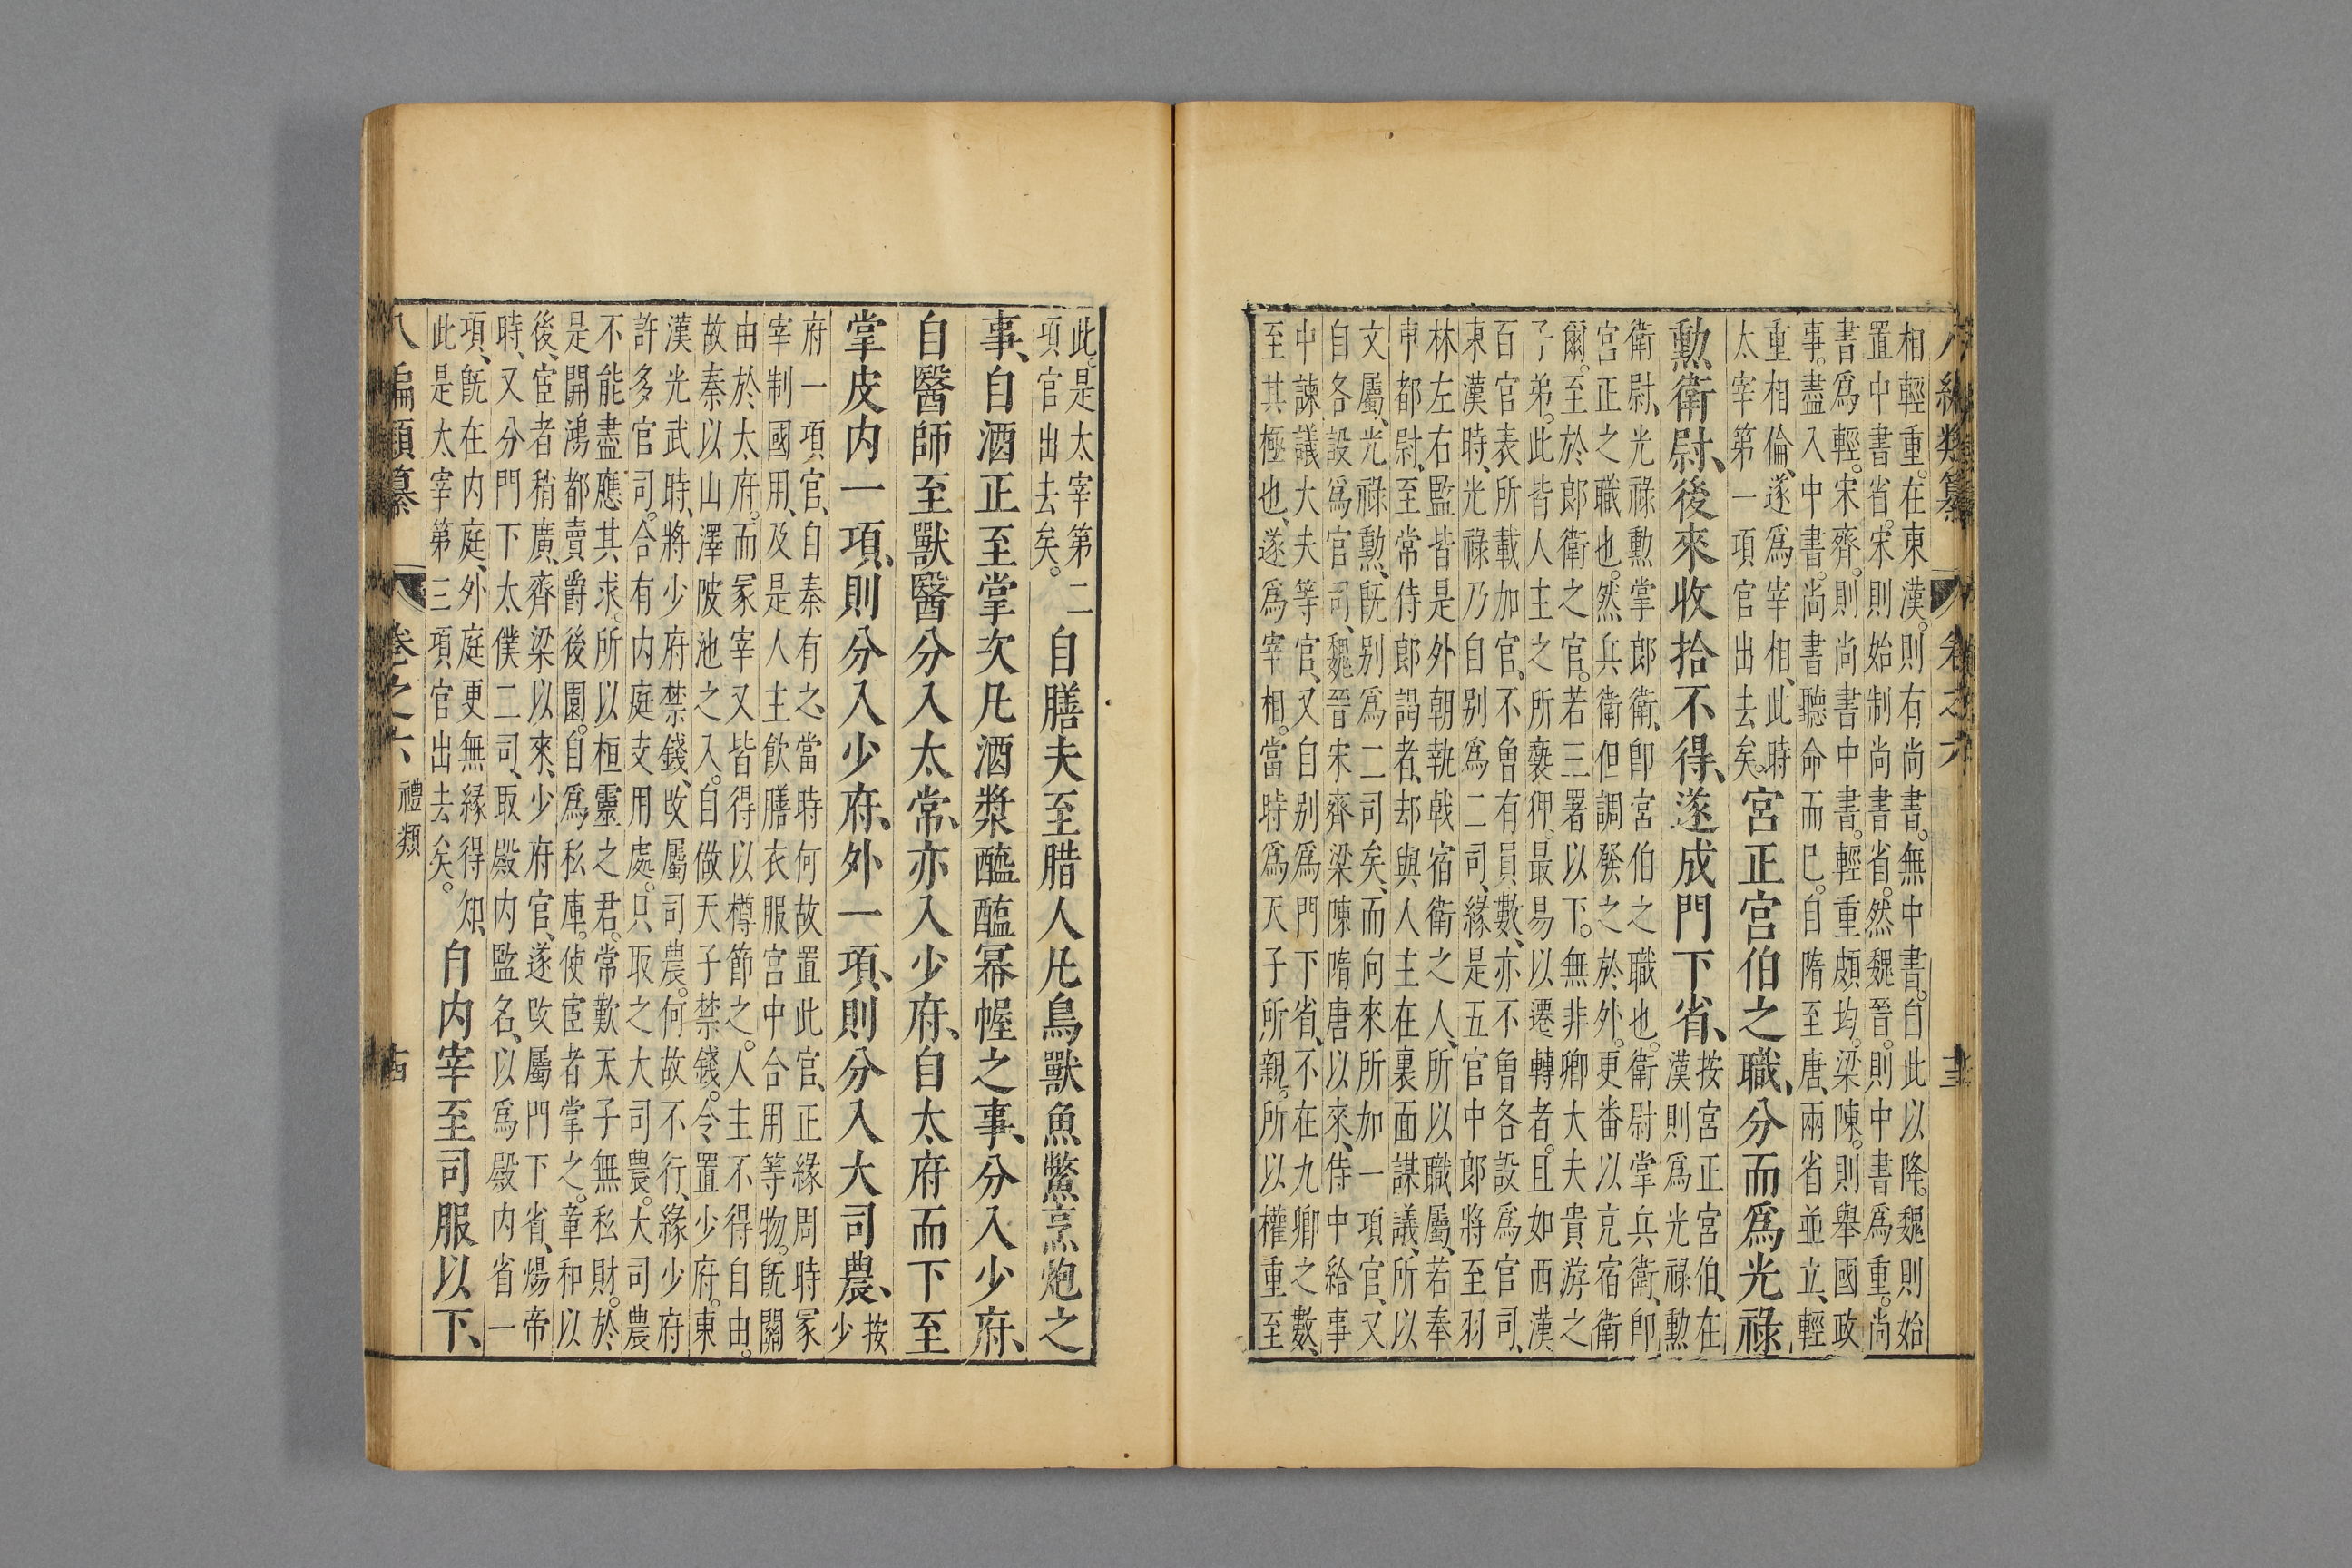 八編類纂 卷之六 十三
相輕重。在東漢。則有尚書。無中書。自此以降。魏則始
置中書省。宋則始制尚書省。然魏晉。則中書爲重。尚
書爲輕。宋齊。則尚書中書。輕重頗均。梁陳。則舉國政
事。盡入中書。尚書聽命而已。自隋至唐、兩省並立、輕
重相倫、遂爲宰相、此時
太宰第一項官出去矣。
宮正宮伯之職、分而爲光祿
勳衛尉、後來收拾不得、遂成門下省、
按宮正宮伯、在
漢則爲光祿勳
衛尉、光祿勳掌郎衛、卽宮伯之職也。衛尉掌兵衛、卽
宮正之職也。然兵衛但調發之於外。更番以克宿衛
爾。至於郎衛之官。若三署以下。無非卿大夫貴游之
子弟。此皆人主之所褻狎。最易以遷轉者。且如西漢
百官表所載加官、不魯有員數、亦不魯各設爲官司、
東漢時、光祿乃自別爲二司、緣是五官中郎將至羽
林左右監皆是外朝執戟宿衛之人、所以職屬、若奉
車都尉、至常侍郎謁者、却與人主在裏面謀議、所以
文屬、光祿勳、旣別爲二司矣、而向來所加一項官、又
自各設爲官司、魏晉宋齊梁陳隋唐以來、侍中給事
中諫議大夫等官、又自別爲門下省、不在九卿之數、
至其極也、遂爲宰相。當時爲天子所親。所以權重至
此。是太宰第二
項官出去矣。
自膳夫至腊人凡鳥獸魚鱉烹炮之
事、自酒正至掌次凡酒漿醯醢幂幄之事、分入少府、
自醫師至獸醫分入太常、亦入少府、自太府而下至
掌皮内一項、則分入少府、外一項、則分入大司農、
按
少
府一項官、自秦有之、當時何故置此官、正緣周時冢
宰制國用、及是人主飲膳衣服宮中合用等物。旣關
由於太府。而冢宰又皆得以樽節之。人主不得自由。
故秦以山澤陂池之入。自做天子禁錢。令置少府。東
漢光武時、將少府禁錢、改屬司農。何故不行、緣少府
許多官司。合有内庭支用處。只取之大司農。大司農
不能盡應其求。所以桓靈之君。常歎天子無私財。於
是開鴻都賣爵後園。自爲私庫。使宦者掌之。章和以
後、宦者稍廣、齊梁以來、少府官、遂改屬門下省、煬帝
時、又分門下太僕二司、取殿内監名、以爲殿内省一
項、旣在内庭、外庭更無緣得知、
此是太宰第三項官出去矣。
自内宰至司服以下、
八編類纂 卷之六 禮類 十四